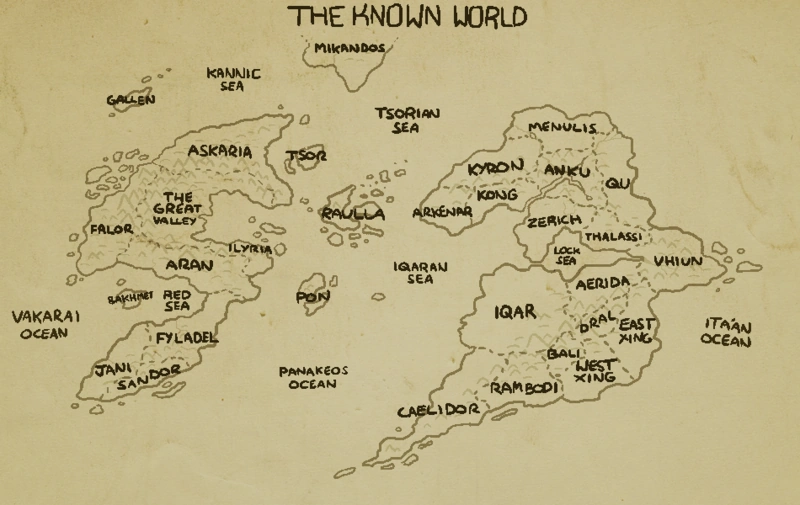 THE KNOWN WORLD
MIKANDOS
KANNIC
SEA
GALLEN
TSORIAN
SEA
MENULIS
ASKARIA
TSOR
KYRON
ANKU
QU
KONG
THE
GREAT
VALLEY
RAULLA
ARKENAR
ZERICH
FALOR
THALASSI
ILYRIA
LOCK
SEA
VHIUN
ARAN
IQARAN
SEA
AERIDA
BAKHMET
RED
SEA
PON
IQAR
VAKARAI
OCEAN
DRAL
EAST
XING
ITA'AN
OCEAN
FYLADEL
BALI
WEST
XING
JANI
SANDOR
PANAKEOS
OCEAN
RAMBODI
CAELIDOR